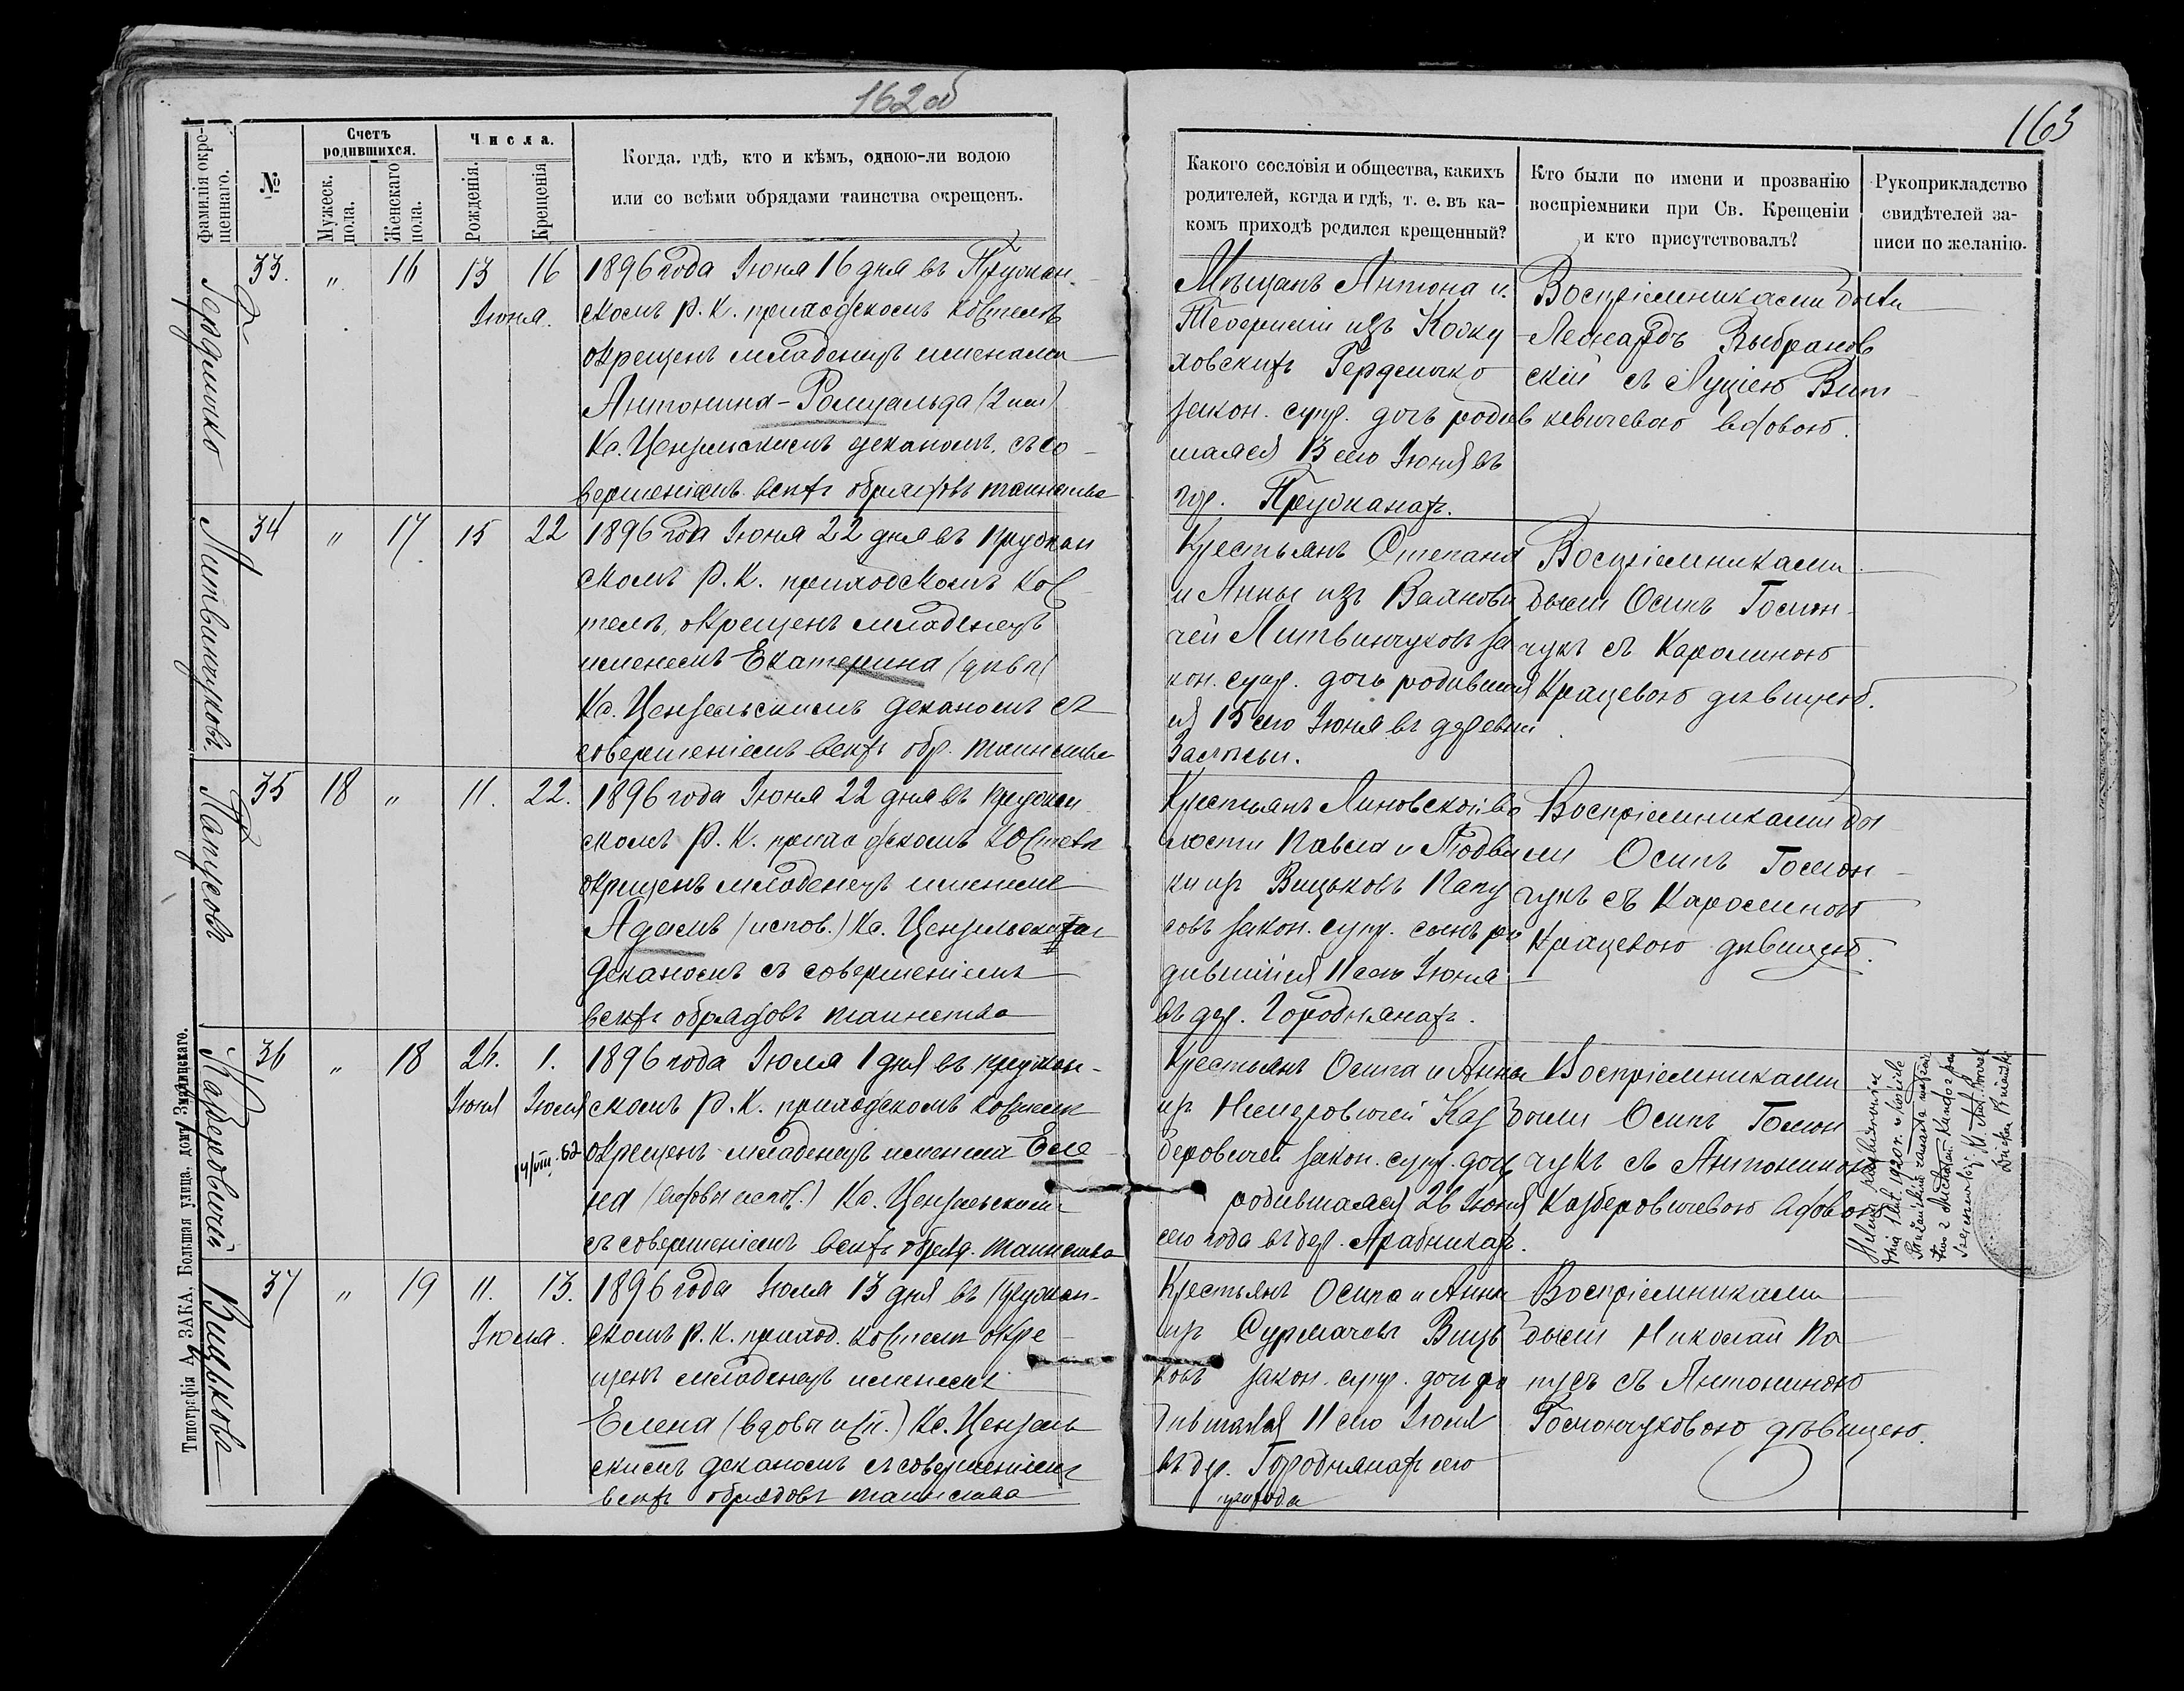 162 об
фамилія окре-
щеннаго.
№
Счетъ
родившихся.
Мужеск.
пола.
Женскаго
пола.
Числа.
Рожденія.
Крещенія
Когда, гдѣ, кто и кѣмъ, одною-ли водою
или со всѣми обрядами таинства окрещенъ.
Гердешко
33. " 16 13 16
Іюня.
1896 года Іюня 16 дня въ Пружан-
скомъ Р. К. приходскомъ костелѣ
окрещенъ младенецъ именами
Антонина-Ромуальда (2 им)
Кс. Цензельскимъ деканомъ, съ со-
вершеніемъ всѣхъ обрядовъ таинства
Литвинчуковъ.
34 " 17 15 22
1896 года Іюня 22 дня въ Пружан
скомъ Р. К. приходскомъ Кос
телѣ, окрещенъ младенецъ
именемъ Екатерина (дѣвы)
Кс. Цензельскимъ деканомъ съ
совершеніемъ всѣхъ обр. таинства
Папусовъ
35 18 " 11. 22.
1896 года Іюня 22 дня въ Пружан
скомъ Р. К. приходскомъ костелѣ
окрещенъ младенецъ именемъ
Адамъ (испов.) Кс. Цензельскимъ
деканомъ съ совершеніемъ
всѣхъ обрядовъ таинства
Казберовичей
36 " 18 26. 1.
Іюня Іюля
14/VIII. 62
1896 года Іюля 1 дня въ Пружан-
скомъ Р. К. приходскомъ костелѣ
окрещенъ младенецъ именемъ Еле
на (вдовы испов.) Кс. Цензельскимъ
съ совершеніемъ всѣхъ обряд. таинства
Вицьковъ
37 " 19 11. 13.
Іюля.
1896 года Іюля 13 дня въ Пружан-
скомъ Р. К. приход. костелѣ окре
щенъ младенецъ именемъ
Елена (вдовы исп.) Кс. Цензель
скимъ деканомъ съ совершеніемъ
всѣхъ обрядовъ таинства
Типографія А. ЗАКА. Большая улица, домъ Знаменскаго.
163
Какого сословія и общества, какихъ
родителей, когда и гдѣ, т. е. въ ка-
комъ приходѣ родился крещенный?
Кто были по имени и прозванію
воспріемники при Св. Крещеніи
и кто присутствовалъ?
Рукоприкладство
свидѣтелей за-
писи по желанію.
Мѣщанъ Антона и
изъ
ховскихъ Гердешко
закон. супр. дочь родив
шаяся 13 сего Іюня въ
гор. Пружанахъ.
Воспріемниками были
Леонардъ Выбранов
скій съ Луціею Вит
кевичевою вдовою.
Крестьянъ Степана
и Анны изъВаянови
чей Литвинчуковъ за
кон. супр. дочь родивша
яся 15 сего Іюня въ деревни
Воспріемниками
были Осипъ Гомон-
чукъ съ Каролиною
Крацевою дѣвицею.
Крестьянъ Линовской во
лости Павла и Людви
ки изъ Вицьковъ Папу
совъ закон. супр. сынъ ро
дившійся 11 сего Іюня
въ дер. Городнянахъ.
Воспріемниками бы
ли Осипъ Гомон-
чукъ съ Каролиною
Крацевою дѣвицею.
Крестьянъ Осипа и Анны
изъ Нимеровичей Каз
беровичей закон. супр. дочь
родившаяся 26 Іюня
сего года въ дер. Арабникахъ.
Воспріемниками
были Осипъ Гомон
чукъ съ Антониною
Казберовичевою вдовою
Крестьянъ Осипа и Анны
изъ Сурмачевъ Виць
ковъ закон. супр. дочь ро
дившаяся 11 сего Іюля
въ дер. Городнянахъ сего
года
Воспріемниками
были Николай Па
пусъ съ Антониною
Гомончуковою дѣвицею.